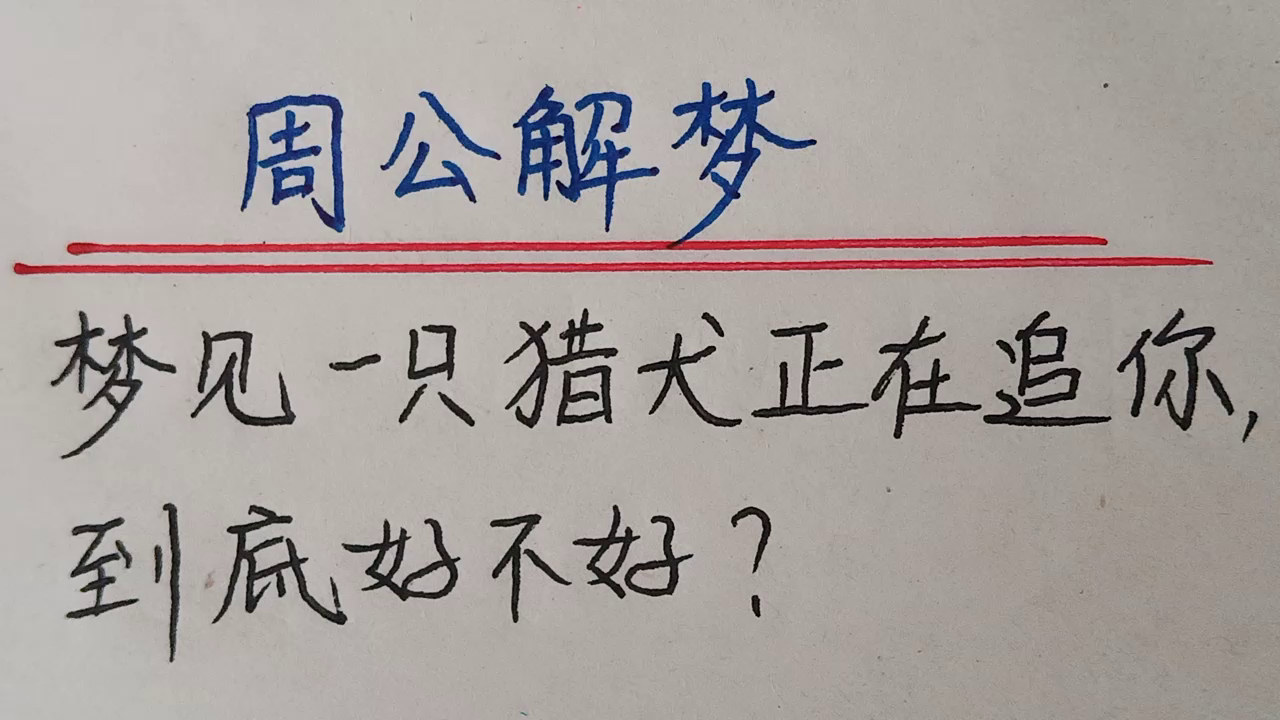 周公解梦
梦见一只猎犬正在追你,
到底好不好?